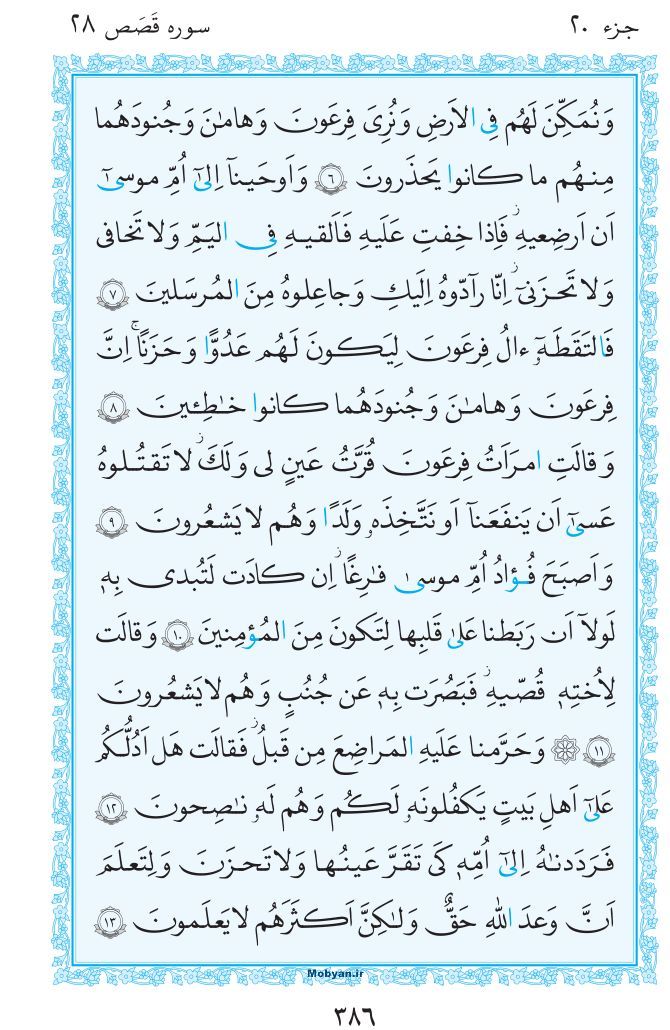 جزء ۲۰
سوره قَصَص ۲۸
وَنُمَكِّنَ لَهُم فِي الاَرضِ وَنُرِيَ فِرعَونَ وَهامٰنَ وَجُنودَهُما
مِنهُم ما كانوا يَحذَرونَ ﴿٦﴾ وَاَوحَينآ اِلىٰٓ اُمِّ موسىٰٓ
اَن اَرضِعيهِ ۖ فَاِذا خِفتِ عَلَيهِ فَاَلقيهِ فِي اليَمِّ وَلا تَخافى
وَلا تَحزَنىٓ ۖ اِنّا رآدّوهُ اِلَيكِ وَجاعِلوهُ مِنَ المُرسَلينَ ﴿٧﴾
فَالتَقَطَهٓۥ ءالُ فِرعَونَ لِيَكونَ لَهُم عَدُوًّا وَحَزَنًا ۗ اِنَّ
فِرعَونَ وَهامٰنَ وَجُنودَهُما كانوا خٰطِـٔينَ ﴿٨﴾
وَقالَتِ امرَاَتُ فِرعَونَ قُرَّتُ عَينٍ لى وَلَكَ ۖ لا تَقتُلوهُ
عَسىٰٓ اَن يَنفَعَنآ اَو نَتَّخِذَهۥ وَلَدًا وَهُم لا يَشعُرونَ ﴿٩﴾
وَاَصبَحَ فُؤادُ اُمِّ موسىٰ فٰرِغًا ۖ اِن كادَت لَتُبدى بِهٖ
لَولآ اَن رَبَطنا عَلىٰ قَلبِها لِتَكونَ مِنَ المُؤمِنينَ ﴿١٠﴾ وَقالَت
لِاُختِهٖ قُصّيهِ ۖ فَبَصُرَت بِهٖ عَن جُنُبٍ وَهُم لا يَشعُرونَ
﴿١١﴾ ۞ وَحَرَّمنا عَلَيهِ المَراضِعَ مِن قَبلُ فَقالَت هَل اَدُلُّكُم
عَلىٰٓ اَهلِ بَيتٍ يَكفُلونَهۥ لَكُم وَهُم لَهۥ نٰصِحونَ ﴿١٢﴾
فَرَدَدنٰهُ اِلىٰٓ اُمِّهٖ كَى تَقَرَّ عَينُها وَلا تَحزَنَ وَلِتَعلَمَ
اَنَّ وَعدَ اللهِ حَقٌّ وَلٰكِنَّ اَكثَرَهُم لا يَعلَمونَ ﴿١٣﴾
Mobyan.ir
۳۸۶